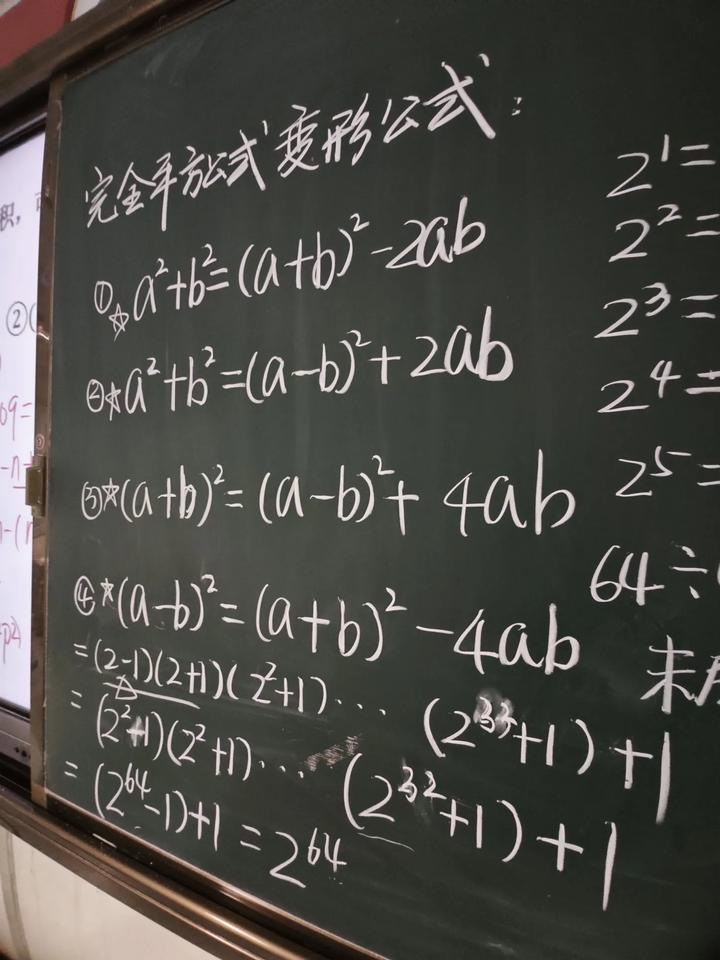 完全平方公式变形公式:
①☆a²+b²=(a+b)²-2ab
②☆a²+b²=(a-b)²+2ab
③☆(a+b)²=(a-b)²+4ab
④☆(a-b)²=(a+b)²-4ab
=(2-1)(2+1)(2²+1)...(2³²+1)+1
=(2²-1)(2²+1)...(2³²+1)+1
=(2⁶⁴-1)+1=2⁶⁴
2¹=
2²=
2³=
2⁴=
2⁵=
64÷
末
积,
②(
69=
-n
-(n